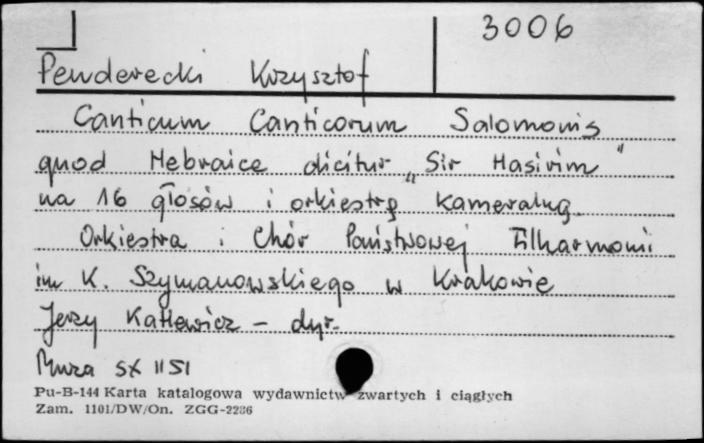 3006
Penderecki Krzysztof
Canticum Canticorum Salomonis
quod Hebraice dicitur „Sir Hasirim"
na 16 głosów i orkiestrę kameralną
Orkiestra i Chór Państwowej Filharmonii
im K. Szymanowskiego w Krakowie
Jerzy Katlewicz – dyr.
Muza SX 1151
Pu-B-144 Karta katalogowa wydawnictw zwartych i ciągłych
Zam. 1101/DW/On. ZGG-2286